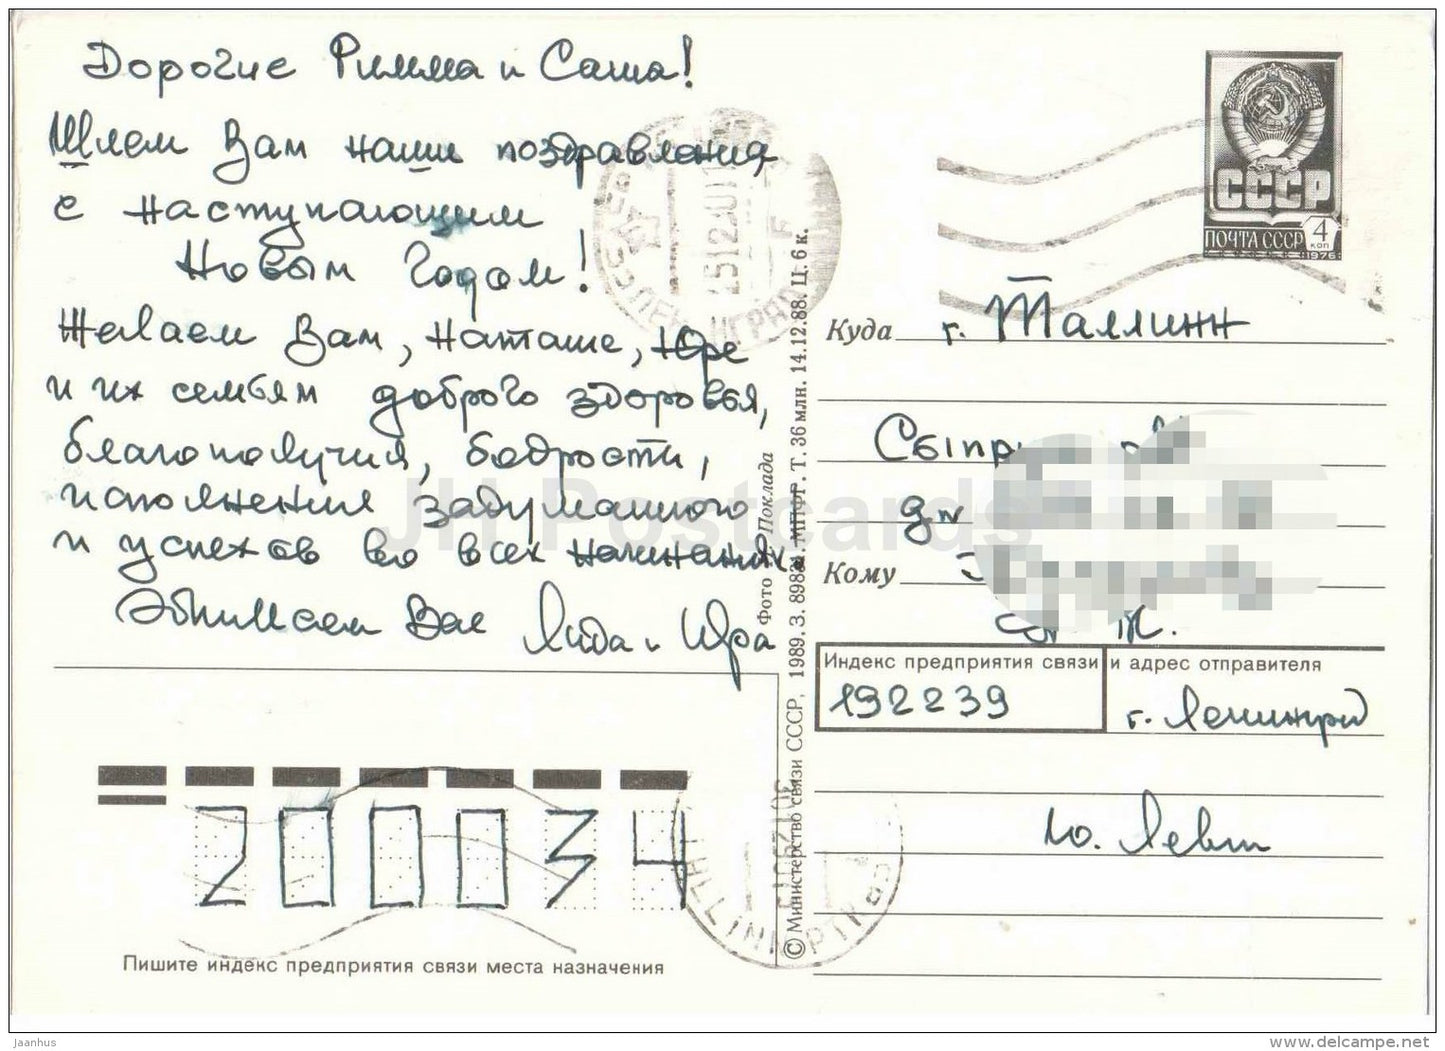 Дорогие Римма и Саша!
Шлем Вам наши поздравления
с наступающим
Новым Годом!
Желаем Вам, Наташе, Юре
и их семьям доброго здоровья,
благополучия, бодрости,
исполнения задуманного
и успехов во всех начинаниях
Обнимаем Вас Лида и Юра
СССР
ПОЧТА СССР 4 КОП
1976
Куда г. Таллинн
Кому
Индекс предприятия связи и адрес отправителя
192239
г. Ленинград
Ю. Левит
200034
Пишите индекс предприятия связи места назначения
Фото Поклада
© Министерство связи СССР, 1989. З. 89834. МПФГ. Т. 36 млн. 14.12.88. Ц. 6 к.
JH Postcards
jaanhus
www.delcampe.net